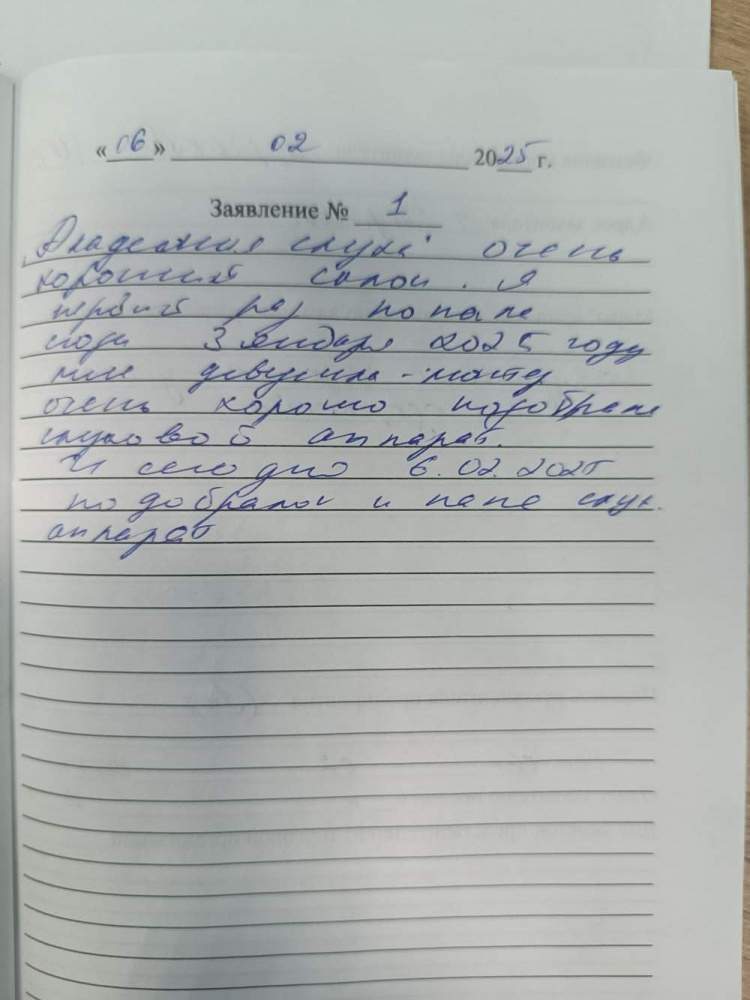 «06» 02 2025 г.
Заявление № 1
Академия слуха очень
хороший салон. Я
первый раз попала
сюда 3 января 2025 году
мне девушка-мастер
очень хорошо подобрала
слуховой аппарат.
И сегодня 6.02.2025
подобрали и папе слух.
аппарат